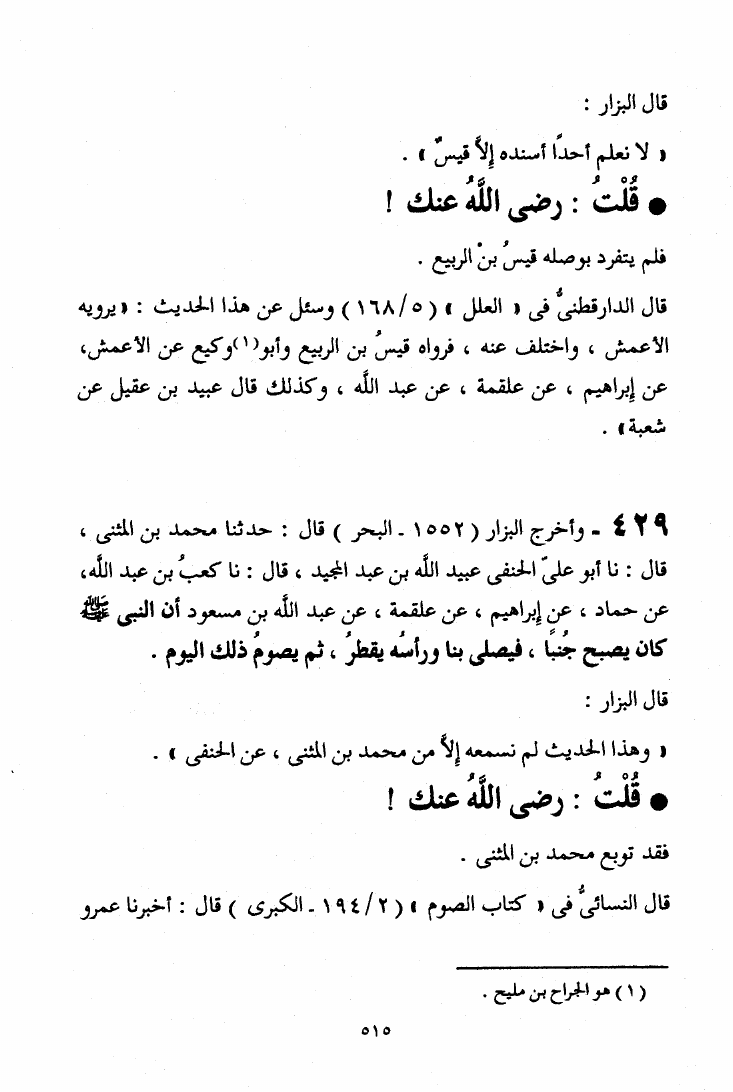 قال البزار :
« لا نعلم أحدًا أسنده إلاَّ قيسٌ » .
● قُلْتُ : رضى اللَّهُ عنك !
فلم يتفرد بوصله قيسُ بنْ الربيع .
قال الدارقطنىُّ فى « العلل » ( ٥/ ١٦٨ ) وسئل عن هذا الحديث : « يرويه
الأعمش ، واختلف عنه ، فرواه قيسُ بن الربيع وأبو(١) وكيع عن الأعمش،
عن إبراهيم ، عن علقمة ، عن عبد اللَّه ، وكذلك قال عبيد بن عقيل عن
شعبة» .
٤٢٩ ـ وأخرج البزار ( ١٥٥٢ ـ البحر ) قال : حدثنا محمد بن المثنى ،
قال : نا أبو علىّ الحنفى عبيد اللَّه بن عبد المجيد ، قال : نا كعبُ بن عبد اللَّه،
عن حماد ، عن إبراهيم ، عن علقمة ، عن عبد اللَّه بن مسعود أن النبى ﷺ
كان يصبح جُنبًا ، فيصلى بنا ورأسُه يقطرُ ، ثم يصومُ ذلك اليوم .
قال البزار :
« وهذا الحديث لم نسمعه إلاَّ من محمد بن المثنى ، عن الحنفى » .
● قُلْتُ : رضى اللَّهُ عنك !
فقد توبع محمد بن المثنى .
قال النسائىُّ فى « كتاب الصوم » ( ٢/ ١٩٤ ـ الكبرى ) قال : أخبرنا عمرو
( ١ ) هو الجراح بن مليح .
٥١٥